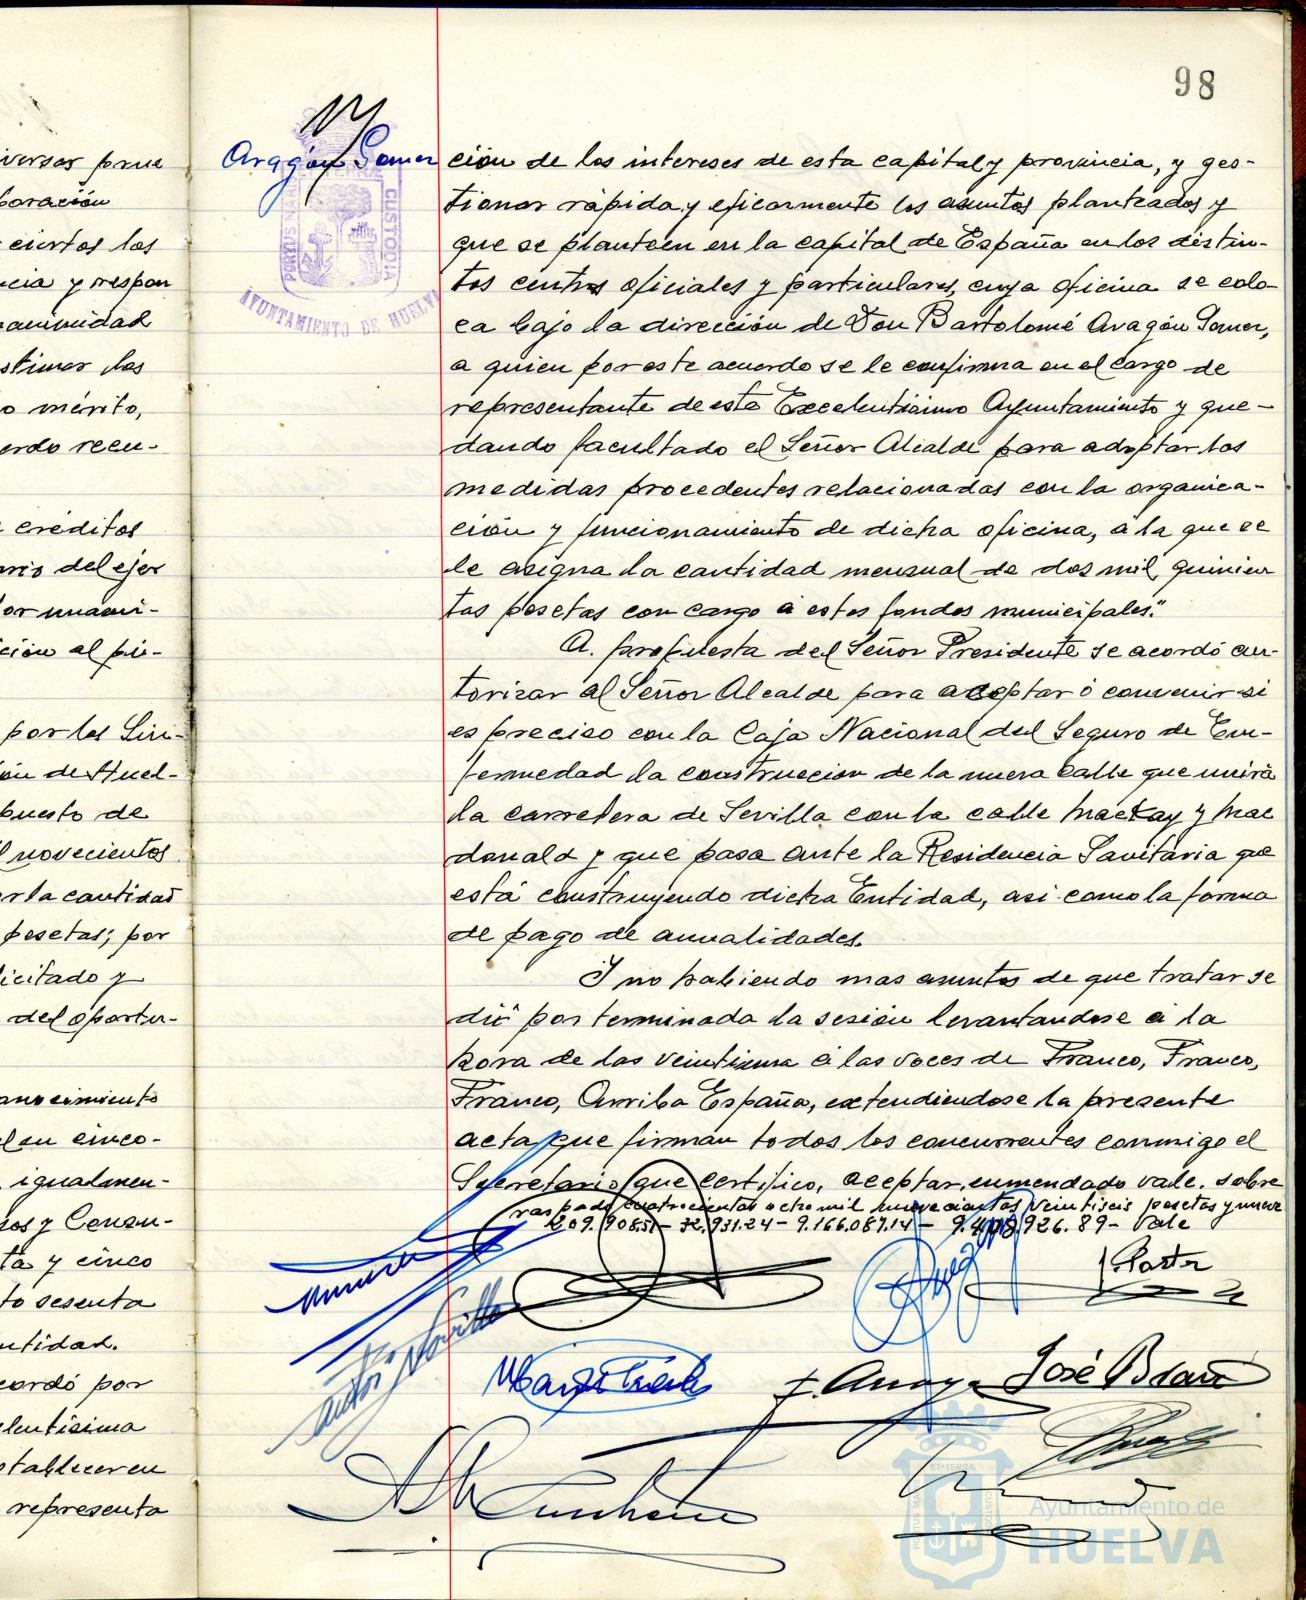 98
versas prue
boración
ciertos los
ncia y respon
nanimidad
stimar los
o mérito,
erdo recu-
créditos
del ejer
or unani-
ción al pú-
por los Siri-
ón de Huel-
puesto de
l novecientos
r la cantidad
pesetas; por
licitado y
del oportu-
anocimiento
en cinco-
igualmen-
sos y Censu-
ta y cinco
to sesenta
ntidad.
cordó por
lentísima
stablecer en
representa
Aragón Gomez
AYUNTAMIENTO DE HUELVA
CUSTODIA
ción de los intereses de esta capital y provincia, y ges-
tionar rápida y eficazmente los asuntos planteados y
que se planteen en la capital de España en los distin-
tos centros oficiales y particulares, cuya oficina se colo-
ca bajo la dirección de Don Bartolomé Aragón Gomez,
a quien por este acuerdo se le confirma en el cargo de
representante de este Excelentísimo Ayuntamiento y que-
dando facultado el Señor Alcalde para adoptar las
medidas procedentes relacionadas con la organiza-
ción y funcionamiento de dicha oficina, a la que se
le asigna la cantidad mensual de dos mil quinien
tas pesetas con cargo a estos fondos municipales."
A propuesta del Señor Presidente se acordó au-
torizar al Señor Alcalde para aceptar ó convenir si
es preciso con la Caja Nacional del Seguro de En-
fermedad la construccion de la nueva calle que unirá
la carretera de Sevilla con la calle Mackay y Mac
donald y que pasa ante la Residencia Sanitaria que
está construyendo dicha Entidad, asi como la forma
de pago de anualidades.
Y no habiendo mas asuntos de que tratar se
dió por terminada la sesión levantandose a la
hora de las veintiuna a las voces de Franco, Franco,
Franco, Arriba España, extendiendose la presente
acta que firman todos los concurrentes conmigo el
Secretario que certifico, aceptar, enmendado vale. sobre
raspado cuatrocientas ocho mil novecientas veintiseis pesetas y nueve
209.908.51 - 32.931.24 - 9.166.087.14 - 9.408.926.89 - Vale
José
Ayuntamiento de
HUELVA